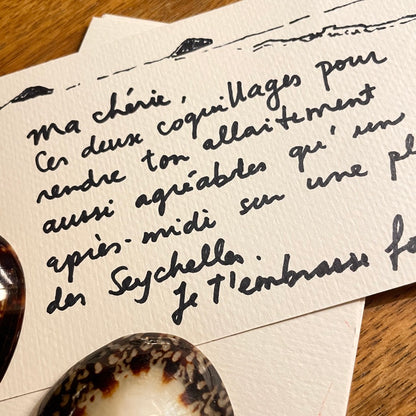 ma chérie,
Ces deux coquillages pour
rendre ton allaitement
aussi agréables qu'un
après-midi sur une pl
des Seychelles.
Je t'embrasse fo